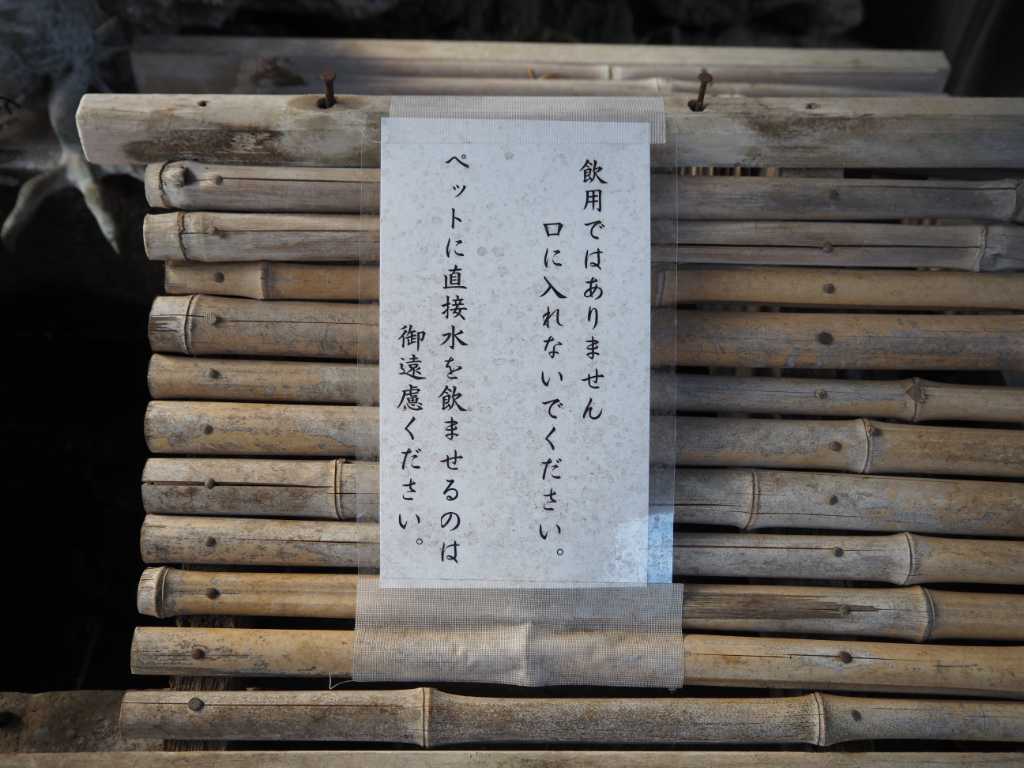 飲用ではありません
口に入れないでください。
ペットに直接水を飲ませるのは
御遠慮ください。